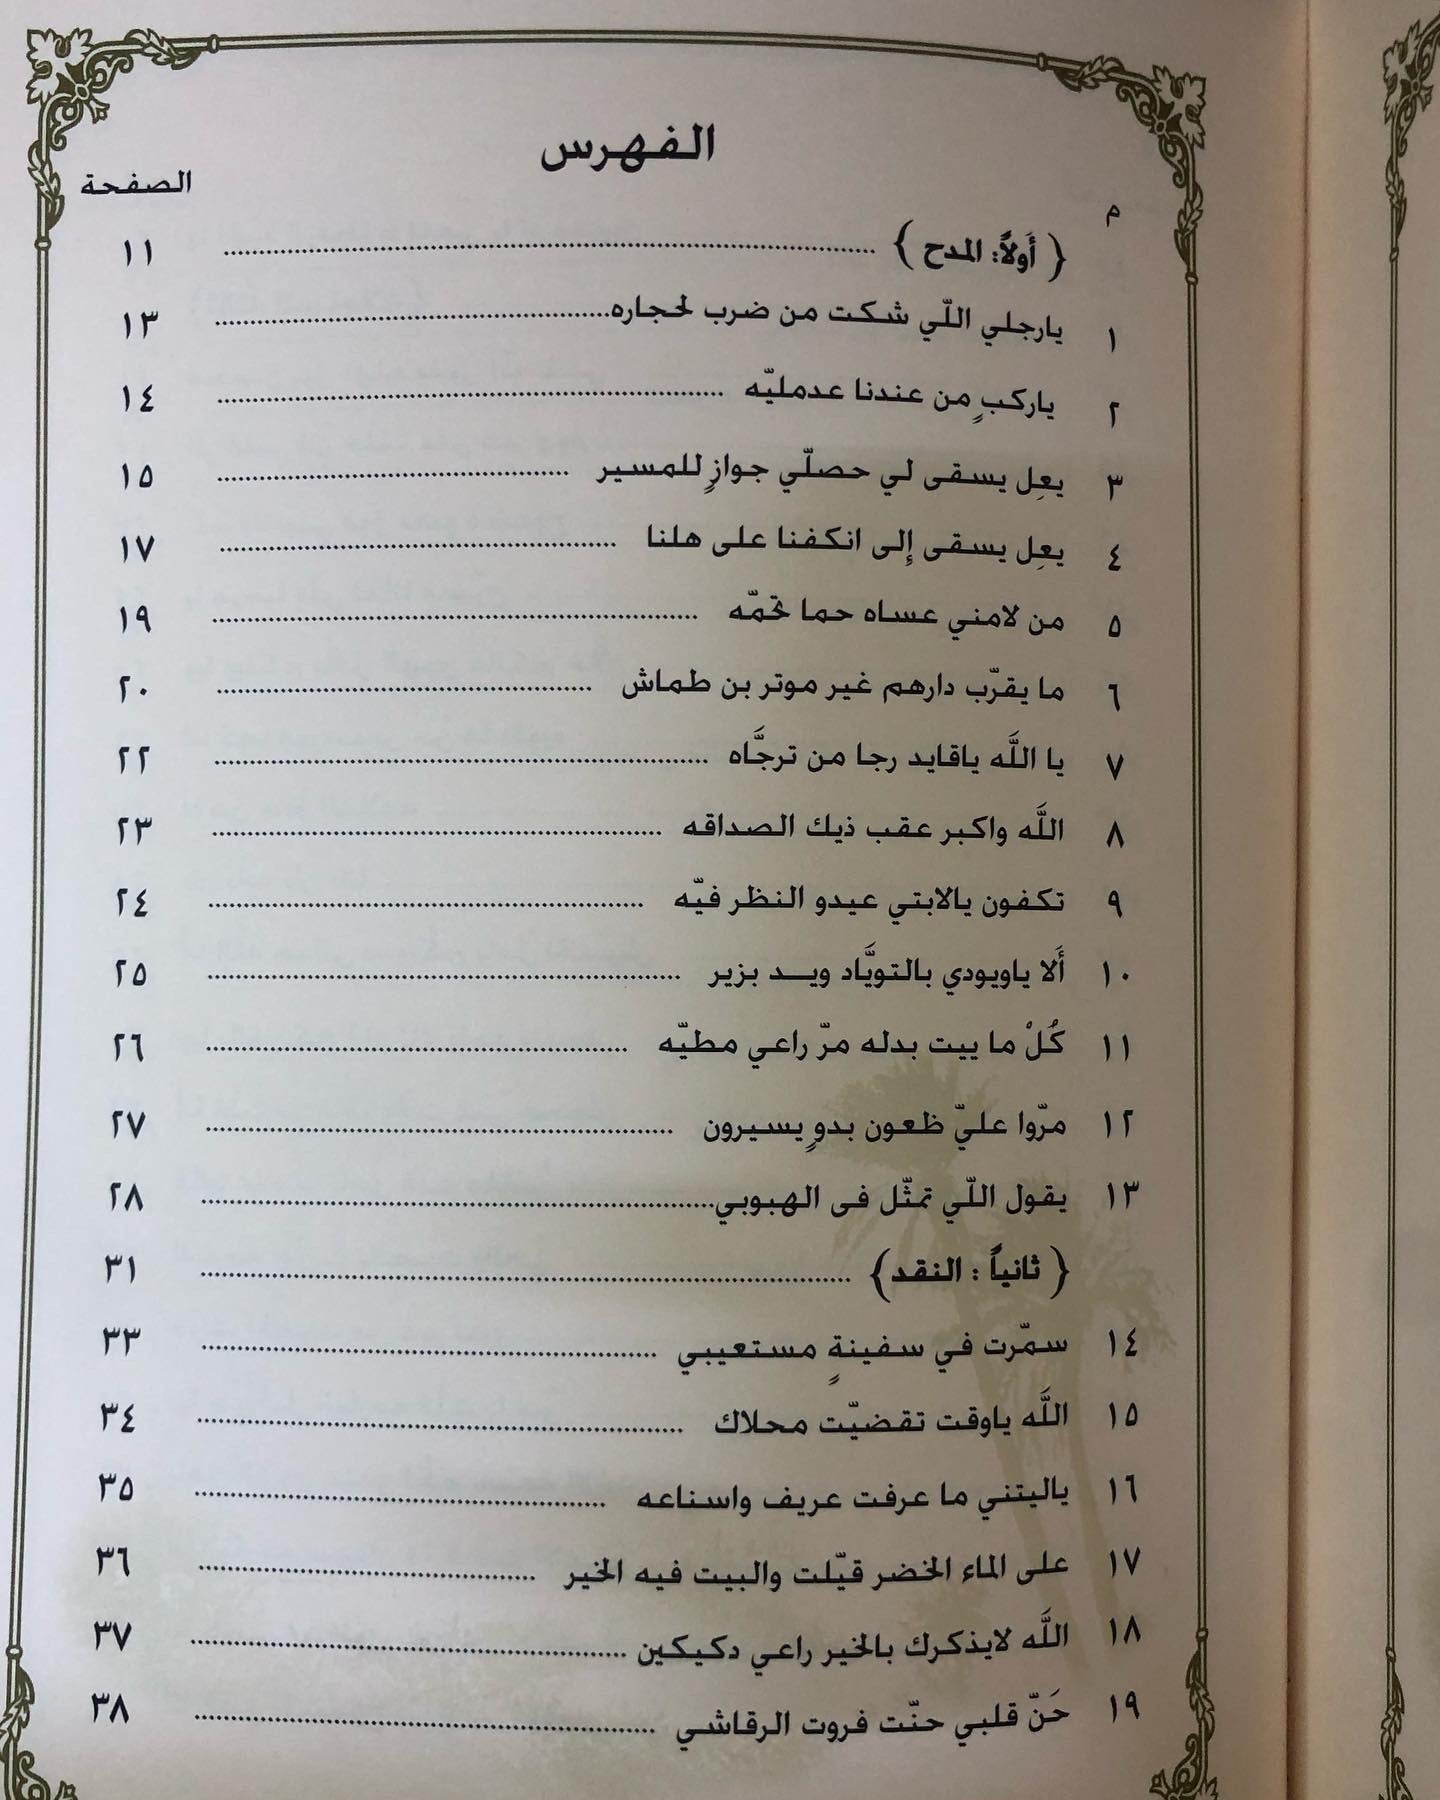 الفهرس
م الصفحة
{ أولاً: المدح } ........ ١١
١ يارجلي اللّي شكت من ضرب لحجاره ........ ١٣
٢ ياركبٍ من عندنا عدمليّه ........ ١٤
٣ يعِل يسقى لي حصلّي جوازٍ للمسير ........ ١٥
٤ يعِل يسقى إلى انكفنا على هلنا ........ ١٧
٥ من لامني عساه حما تحمّه ........ ١٩
٦ ما يقرّب دارهم غير موتر بن طماش ........ ٢٠
٧ يا اللَّه ياقايد رجا من ترجَّاه ........ ٢٢
٨ اللَّه واكبر عقب ذيك الصداقه ........ ٢٣
٩ تكفون يالابتي عيدو النظر فيّه ........ ٢٤
١٠ ألا ياويودي بالتويَّاد ويـد بزير ........ ٢٥
١١ كُلْ ما ييت بدله مرّ راعي مطيّه ........ ٢٦
١٢ مرّوا عليّ ظعون بدوٍ يسيرون ........ ٢٧
١٣ يقول اللّي تمثّل فى الهبوبي ........ ٢٨
{ ثانياً : النقد } ........ ٣١
١٤ سمّرت في سفينةٍ مستعيبي ........ ٣٣
١٥ اللَّه ياوقت تقضيّت محلاك ........ ٣٤
١٦ ياليتني ما عرفت عريف واسناعه ........ ٣٥
١٧ على الماء الخضر قيّلت والبيت فيه الخير ........ ٣٦
١٨ اللَّه لايذكرك بالخير راعي دكيكين ........ ٣٧
١٩ حَنّ قلبي حنّت فروت الرقاشي ........ ٣٨